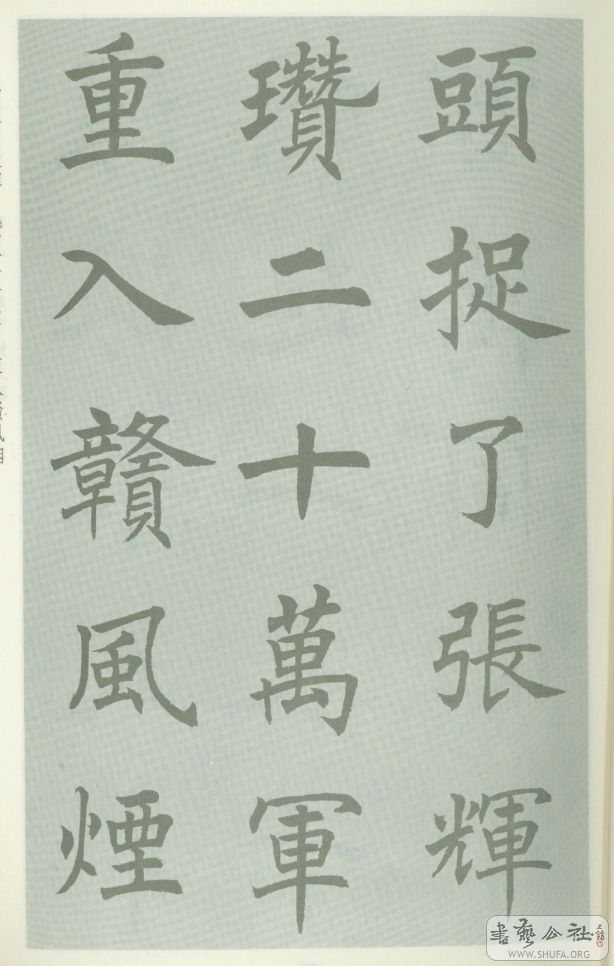 頭捉了張輝
瓚二十萬軍
重入贛風煙
書藝公社
WWW.SHUFA.ORG